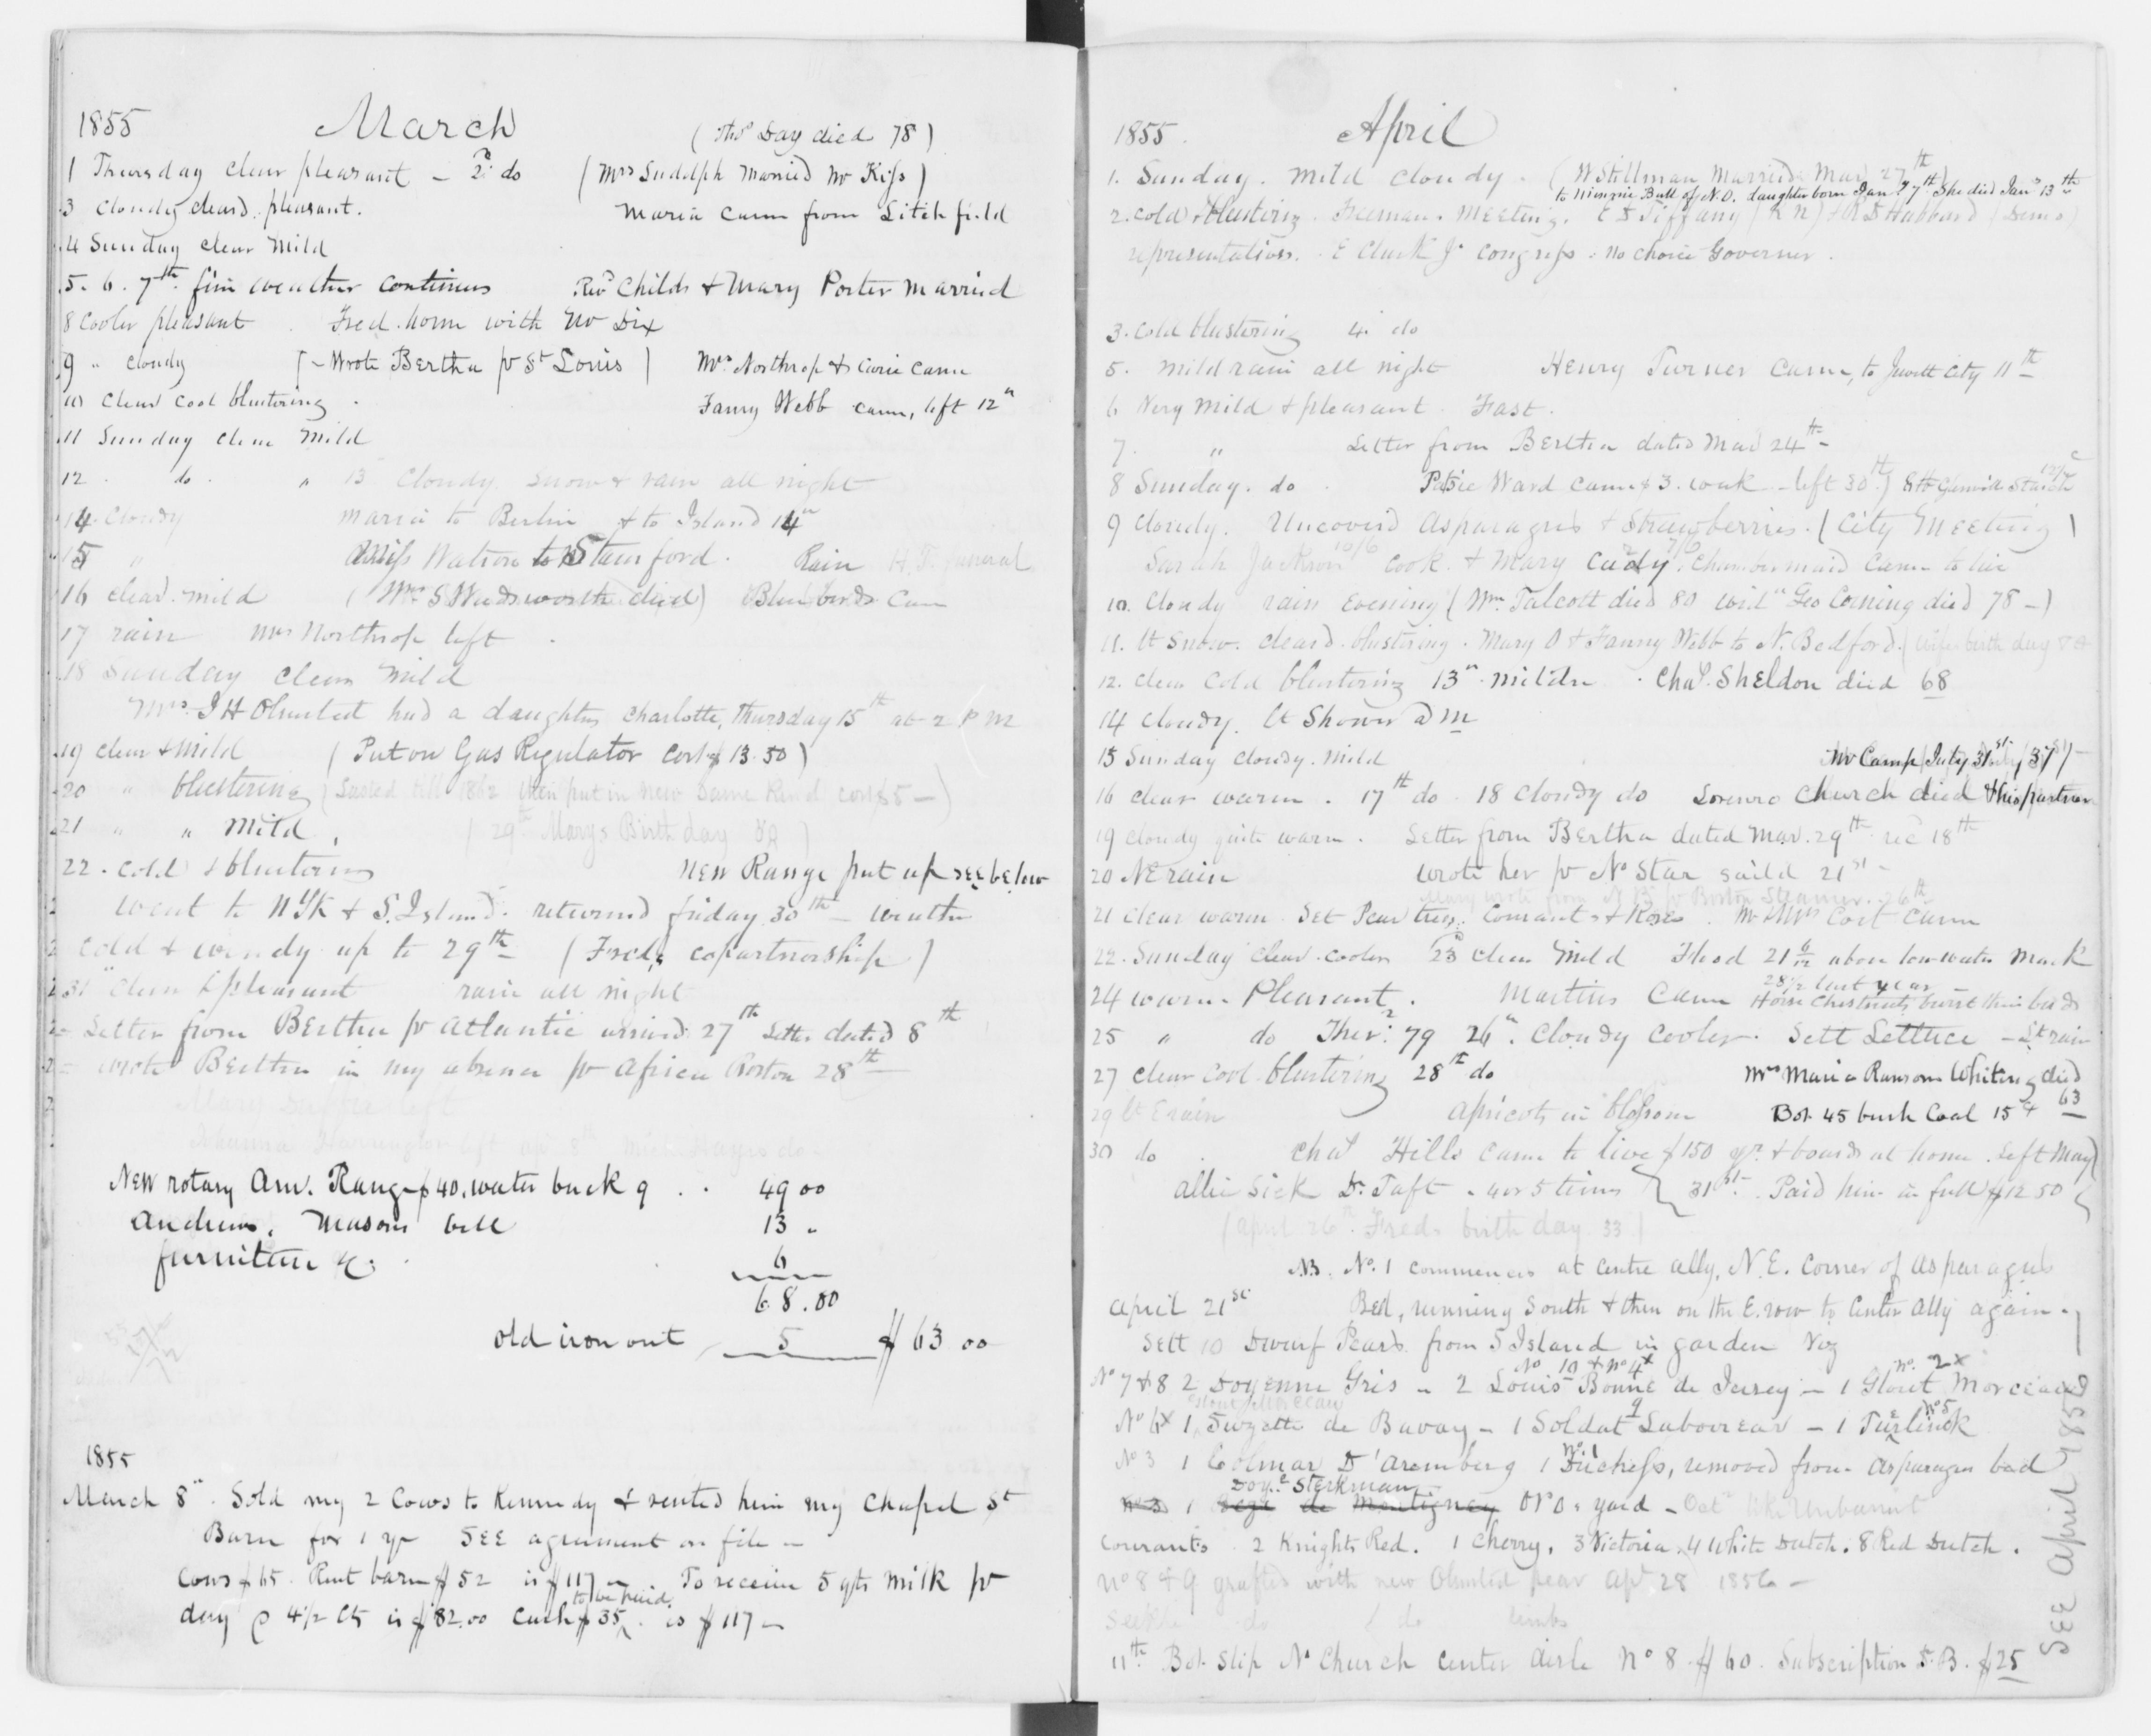 1855 March (Thos Day died 78)
1 Thursday clear pleasant – 2d do (Mrs Sudolph Married Mr Kiss)
3 cloudy cleard. pleasant. Maria came from Litchfield
4 Sunday clear Mild
5. 6. 7th fine weather continues Revd Childs & Mary Porter married
8 Cooler pleasant. Fred. home with Mr Dix
9 " cloudy (– Wrote Bertha pr St Louis) Mrs Northrop & Carie came
10 Clear Cool blustering. Fanny Webb came, left 12"
11 Sunday clear mild
12 do " 13 Cloudy snow & rain all night
14 Cloudy Maria to Berlin & to Island 14"
15 " Miss Watson to Stamford. Rain H. T. funeral
16 clear. mild (Mrs S Wadsworth died) Blue birds Came
17 rain Mrs Northrop left.
18 Sunday clear mild
Mrs J H Olmsted had a daughter Charlotte, Thursday 15th at 2 P M
19 clear & mild (Put on Gas Regulator Cost $13.50)
20 " blustering (Lasted till 1862 then put in new Same Kind, cost $5 –)
21 " " Mild, (29th Marys Birth day)
22. cold & blustering New Range put up see below
Went to N Yk & S. Island. returned friday 30th – weather
cold & windy up to 29th (Freds copartnership)
31" Clear & pleasant rain all night
Letter from Bertha pr Atlantic arrived 27th Letter dated 8th
Wrote Bertha in my absence pr Africa Boston 28th
Mary left
left apr 8th do
New rotary Am. Range $40, water back 9 .. 49 00
Andrews. Masons bill 13 "
furniture &c. 6
68.00
old iron out 5 $63 00
1855
March 8". Sold my 2 Cows to Kennedy & rented him my Chapel St
Barn for 1 yr SEE agreement on file –
Cows $65. Rent barn $52 is $117 – To receive 5 qts milk pr
to be paid
day @ 4 1/2 cts is $82.00 Cash $35. is $117 –
1855. April
1. Sunday. mild cloudy. (W Stillman Married Mar 27th
to Minnie Bull of N.O. daughter born Jany 7th She died Jany 13th
2. cold blustering. Freeman. Meeting. & R D Hubbard (Demo)
representatives. E Clark Jr Congress. no choice Governer.
3. cold blustering 4. do
5. mild rain all night Henry Turner came, to Jewett City 11th
6 Very mild & pleasant. Fast.
7. " Letter from Bertha dated Mar 24th –
8 Sunday. do. Ward came $3. week – left 30th
9 Cloudy. Uncoverd Asparagus & Strawberries. (City Meeting)
Sarah Jackson 10/6 Cook. & Mary Cady 7/6 Chambermaid came to live
10. Cloudy rain evening (Wm Talcott died 80 Geo Corning died 78 –)
11. lt snow. cleard. blustering. Mary O & Fanny Webb to N. Bedford. (wifes birth day
12. clear cold blustering 13" milder. Chas. Sheldon died 68
14 cloudy. lt Shower a m
15 Sunday cloudy. mild Mr Camp July 31st
16 clear warm. 17th do. 18 cloudy do Lorenzo Church died & his partner
19 cloudy quite warm. Letter from Bertha dated Mar. 29th rec 18th
20 NE rain wrote her pr No Star saild 21st –
Mary wrote from N B pr Boston Steamer. 26th
21 clear warm Set Pear trees. Courants & Roses. Mr & Mrs Coit came
22. Sunday clear. cooler 23d clear mild Flood 21 6/12 above low water mark
28 1/2 last year
24 warm Pleasant. Martins came Horse Chestnuts burst their buds
25 " do Ther: 79 26". Cloudy Cooler. Sett Lettuce – Lt rain
27 clear Cool. blustering 28th do Mrs Maria Ransom Whiting died
63
29 lt E rain Apricots in blossom Bot 45 bush Coal 15 cts
30 do. Chas Hills came to live $150 yr. & boards at home. left May
Allie Sick Dr. Taft. 4 or 5 times 31st. Paid him in full $12 50
(April 26th. Freds birth day. 33)
NB. No. 1 commences at centre ally, N.E. Corner of asparagus
April 21st Bed, running South & then on the E. row to Center Ally again.
Sett 10 Dwarf Pears from S Island in garden viz
No 10 & No 4x No. 2x
No 7 & 8 2 Doyenne Gris – 2 Louis Bonne de Jersey – 1 Glout Morceau
9 No 5
No 6x 1 Suzette de Bavay – 1 Soldat Laboureur – 1 Turlinck
No. 1
No 3 1 Colmar D'aremberg 1 Duchess, removed from Asparagus bed
Doye Sterkman
No 3 1 de Montigney yard –
Courants. 2 Knights Red. 1 Cherry. 3 Victoria. 4 White Dutch. 8 Red Dutch.
No 8 & 9 grafted with new Olmsted pear apl 28 1856 –
do do limbs
11th Bot Slip No Church center aisle No 8. $60. Subscription S.B. $25
SEE April 1858